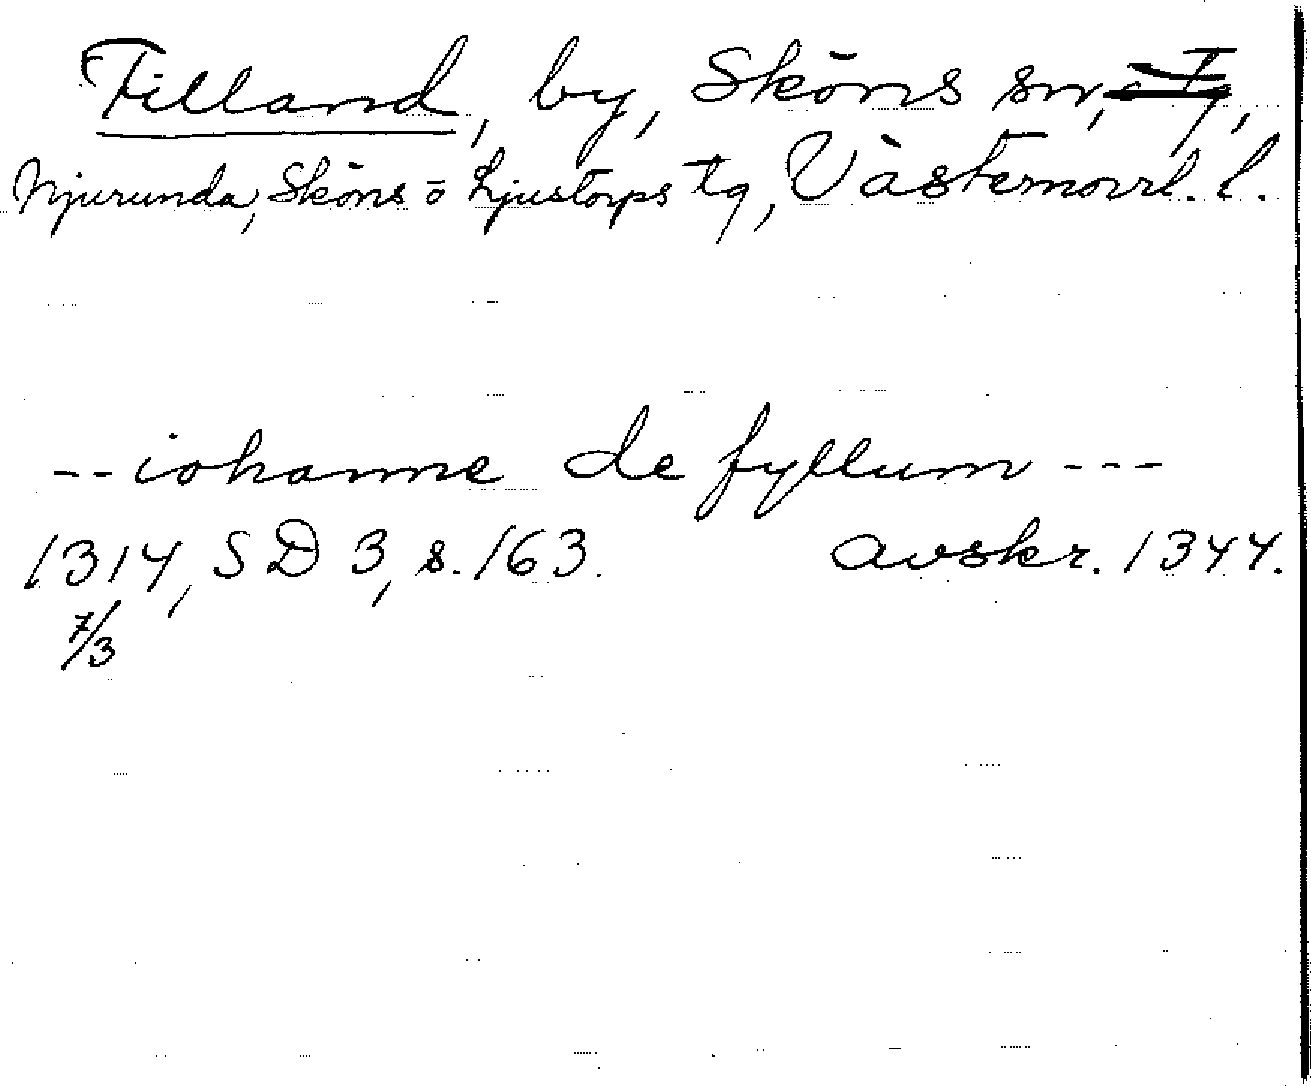 Filland, by, Sköns sn,
Njurunda, Sköns o Ljustorps tg, Västernorrl. l.
-- iohanne de fyllum ---
1314, SD 3, s. 163. avskr. 1344.
7/3